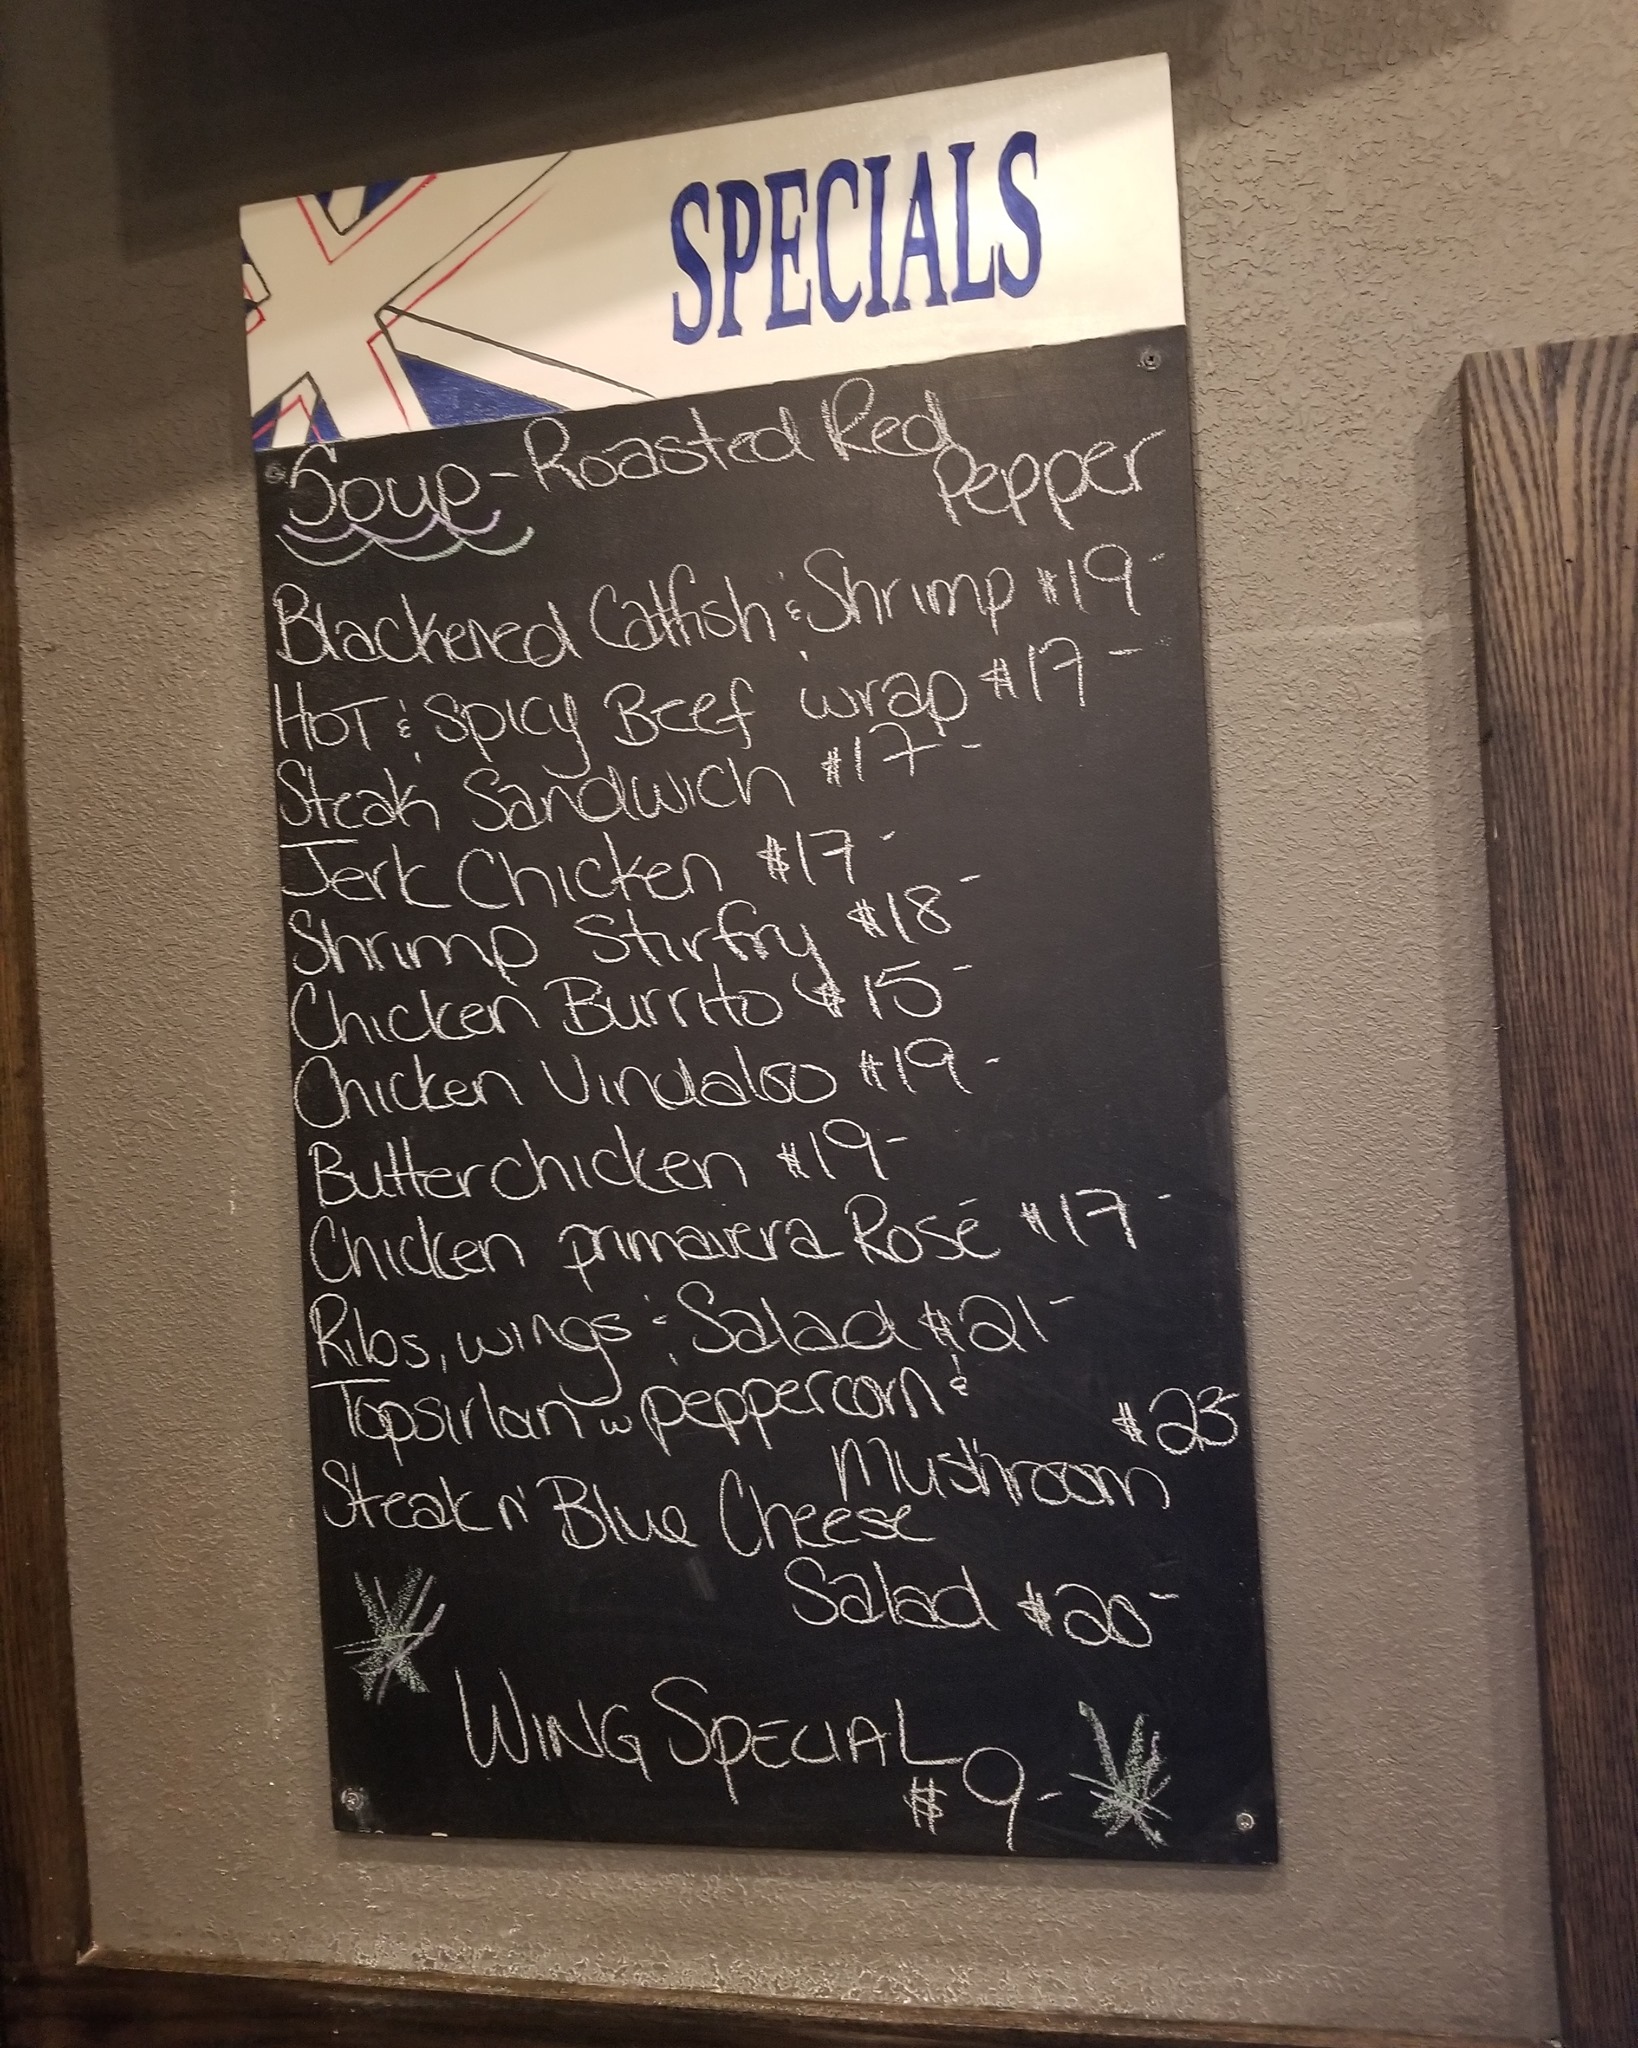 SPECIALS
Soup - Roasted Red
Pepper
Blackened Catfish & Shrimp $19-
HOT & Spicy Beef wrap $17-
Steak Sandwich $17-
Jerk Chicken $17-
Shrimp Stirfry $18-
Chicken Burrito $15-
Chicken Vindaloo $19-
Butter chicken $19-
Chicken primavera Rosé $17-
Ribs, wings & Salad $21-
Topsirloin w peppercorn &
Mushroom $23
Steak n' Blue Cheese
Salad $20-
WING SPECIAL
$9-